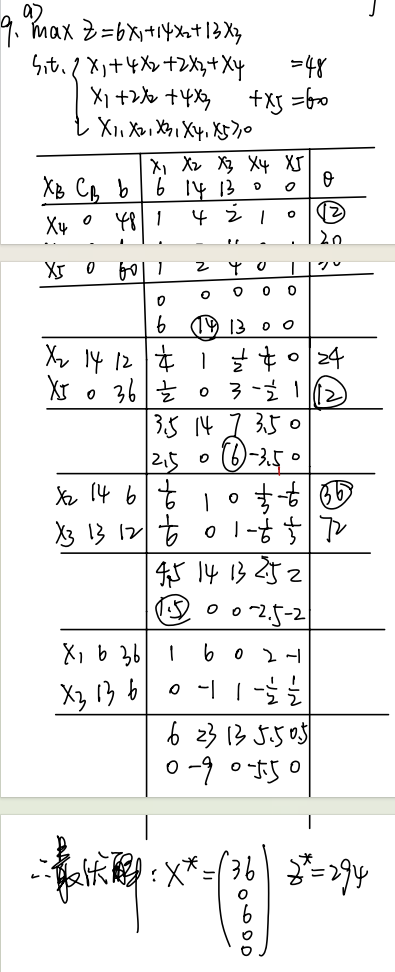 9. a) max Z=6X₁+14X₂+13X₃
s.t. { X₁+4X₂+2X₃+X₄ =48
X₁+2X₂+4X₃ +X₅=60
X₁,X₂,X₃,X₄,X₅≥0
X₁ X₂ X₃ X₄ X₅
X_B C_B b 6 14 13 0 0 θ
X₄ 0 48 1 4 2 1 0 12
X₅ 0 60 1 2 4 0 1 30
0 0 0 0 0
6 14 13 0 0
X₂ 14 12 1/4 1 1/2 1/4 0 24
X₅ 0 36 1/2 0 3 -1/2 1 12
3.5 14 7 3.5 0
2.5 0 6 -3.5 0
X₂ 14 6 1/6 1 0 1/3 -1/6 36
X₃ 13 12 1/6 0 1 -1/6 1/3 72
4.5 14 13 2.5 2
1.5 0 0 -2.5 -2
X₁ 6 36 1 6 0 2 -1
X₃ 13 6 0 -1 1 -1/2 1/2
6 23 13 5.5 0.5
0 -9 0 -5.5 0
∴最优解: X*=(36 Z*=294
0
6
0
0)